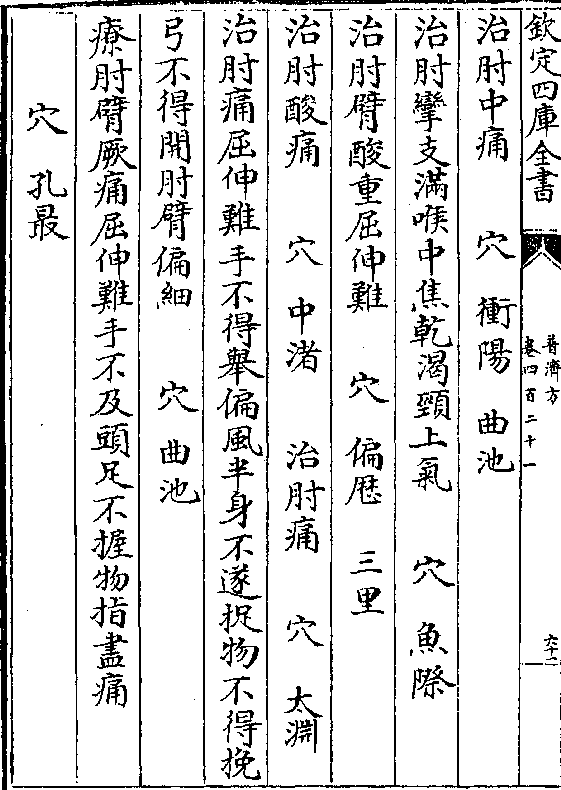 欽定四庫全書
普濟方
卷四百二十一
六十二
治肘中痛 穴 衝陽 曲池
治肘攣支滿喉中焦乾渴頸上氣 穴 魚際
治肘臂酸重屈伸難 穴 偏歷 三里
治肘酸痛 穴 中渚 治肘痛 穴 太淵
治肘痛屈伸難手不得舉偏風半身不遂捉物不得挽
弓不得開肘臂偏細 穴 曲池
療肘臂厥痛屈伸難手不及頭足不握物指盡痛
穴 孔最